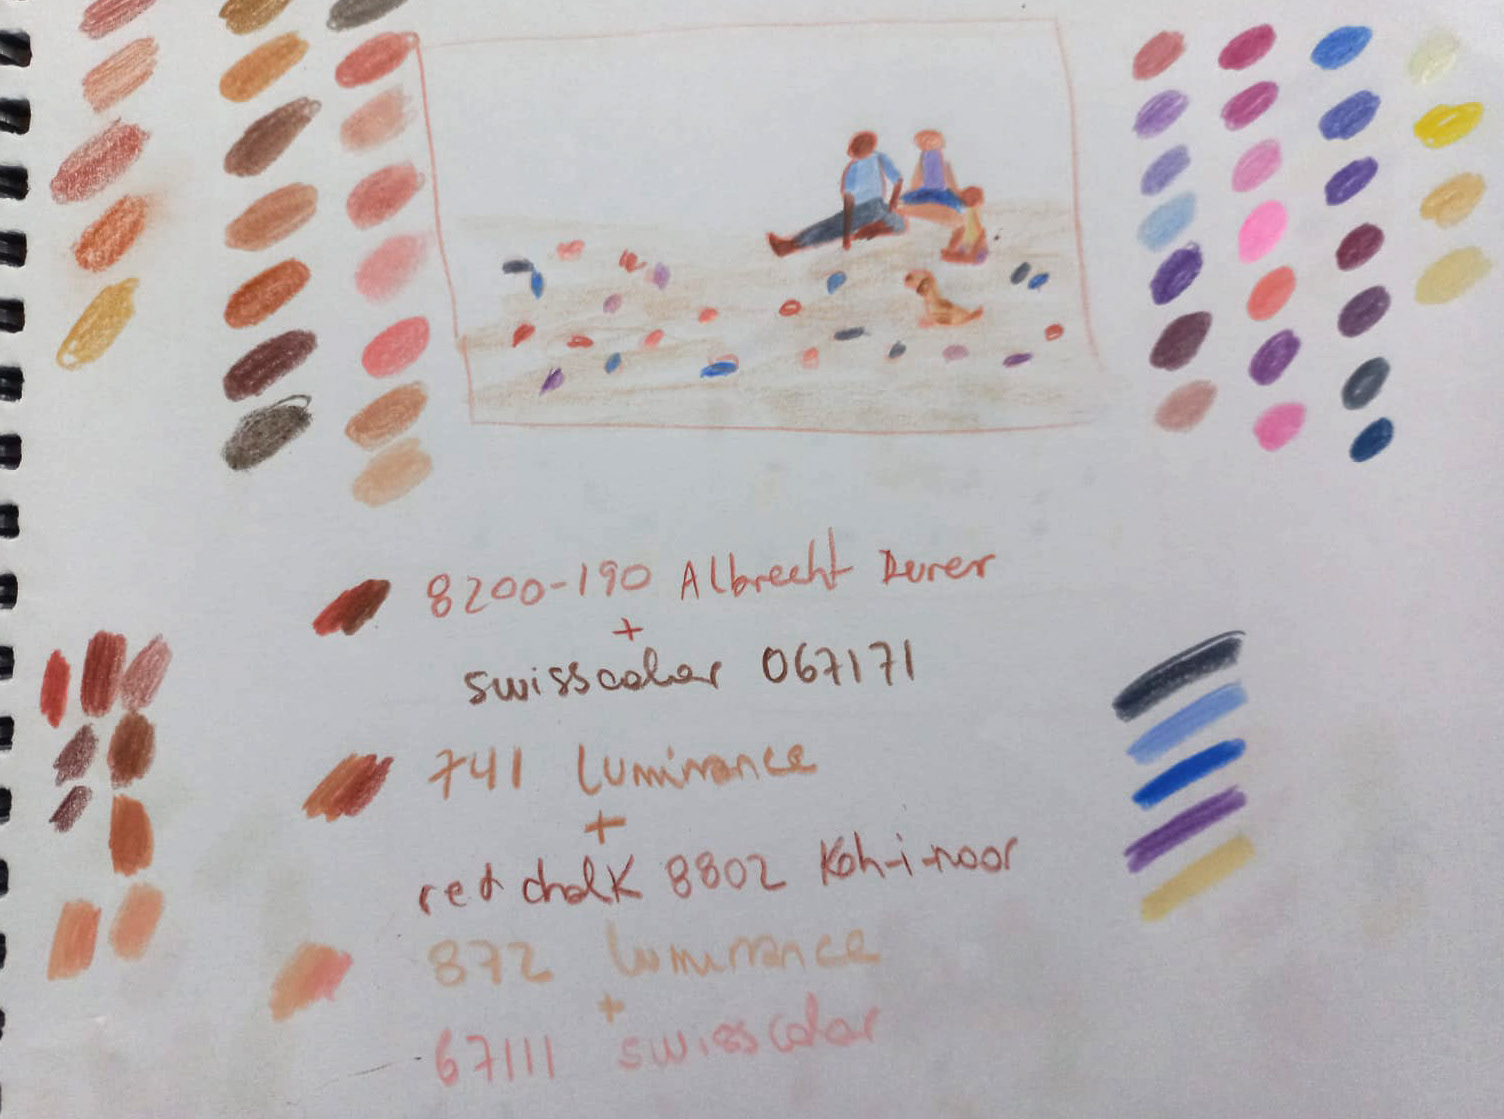 8200-190 Albrecht Durer
+
swisscolor 067171
741 luminance
+
red chalk 8802 Koh-i-noor
872 luminance
+
67111 swisscolor